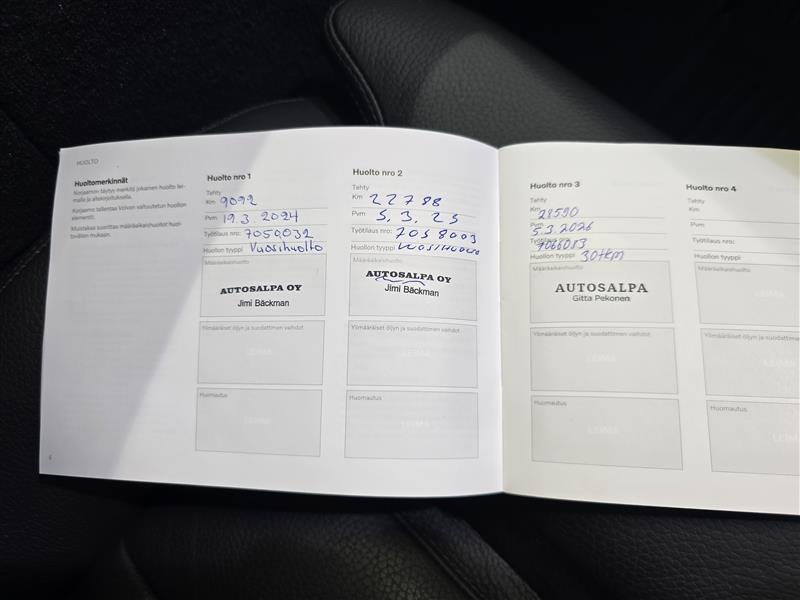 HUOLTO
Huoltomerkinnät
Korjaamon täytyy merkitä jokainen huolto lei-
malla ja allekirjoituksella.
Korjaamo tallentaa Volvon valtuutetun huollon
elementit.
Muistakaa suorittaa määräaikaishuollot huol-
tovälien mukaan.
4
Huolto nro 1
Tehty
Km 9092
Pvm 19.3.2024
Työtilaus nro: 7050032
Huollon tyyppi Vuosihuolto
Määräaikaishuolto
AUTOSALPA OY
Jimi Bäckman
Ylimääräiset öljyn ja suodattimen vaihdot
LEIMA
Huomautus
LEIMA
Huolto nro 2
Tehty
Km 22788
Pvm 5.3.25
Työtilaus nro: 7058003
Huollon tyyppi VUOSIHUOLTO
Määräaikaishuolto
AUTOSALPA OY
Jimi Bäckman
Ylimääräiset öljyn ja suodattimen vaihdot
LEIMA
Huomautus
LEIMA
Huolto nro 3
Tehty
Km 28590
Pvm 5.3.2026
Työtilaus nro: 7066053
Huollon tyyppi 30tkm
Määräaikaishuolto
AUTOSALPA
Gitta Pekonen
Ylimääräiset öljyn ja suodattimen vaihdot
LEIMA
Huomautus
LEIMA
Huolto nro 4
Tehty
Km
Pvm
Työtilaus nro:
Huollon tyyppi
Määräaikaishuolto
LEIMA
Ylimääräiset öljyn ja
LEIMA
Huomautus
LEIMA